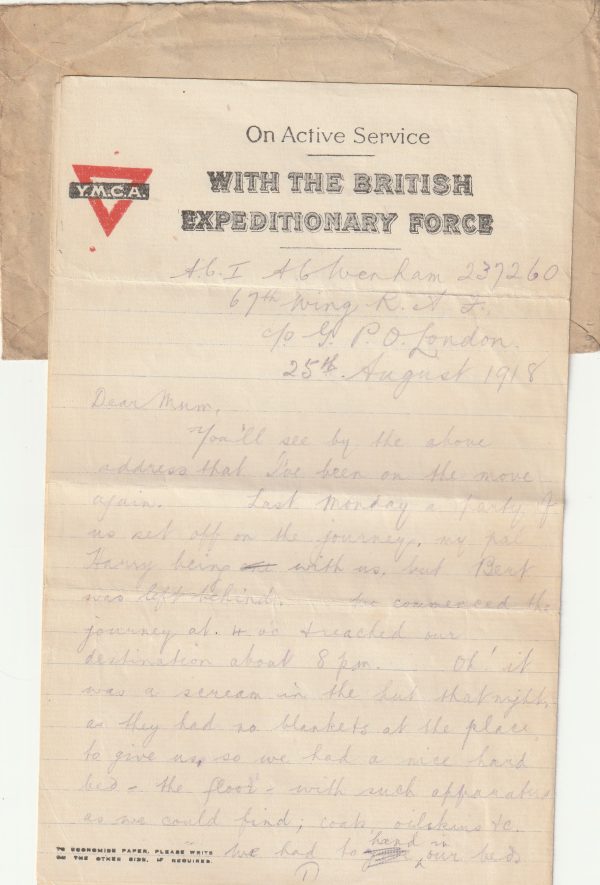 On Active Service
WITH THE BRITISH
EXPEDITIONARY FORCE
Y.M.C.A.
A.C.I A C Wenham 237260
67th Wing R. A. F.,
c/o G. P. O. London.
25th. August 1918
Dear Mum,
You'll see by the above
address that I've been on the move
again. Last Monday a party of
us set off on the journey, my pal
Harry being with us, but Bert
was left behind. We commenced the
journey at 4 oc & reached our
destination about 8 pm. Oh! it
was a scream in the hut that night,
as they had no blankets at the place
to give us, so we had a nice hard
bed - the floor - with such apparatus
as we could find; coats oilskins &c.
We had to hand in our beds
TO ECONOMISE PAPER, PLEASE WRITE
ON THE OTHER SIDE, IF REQUIRED.
1